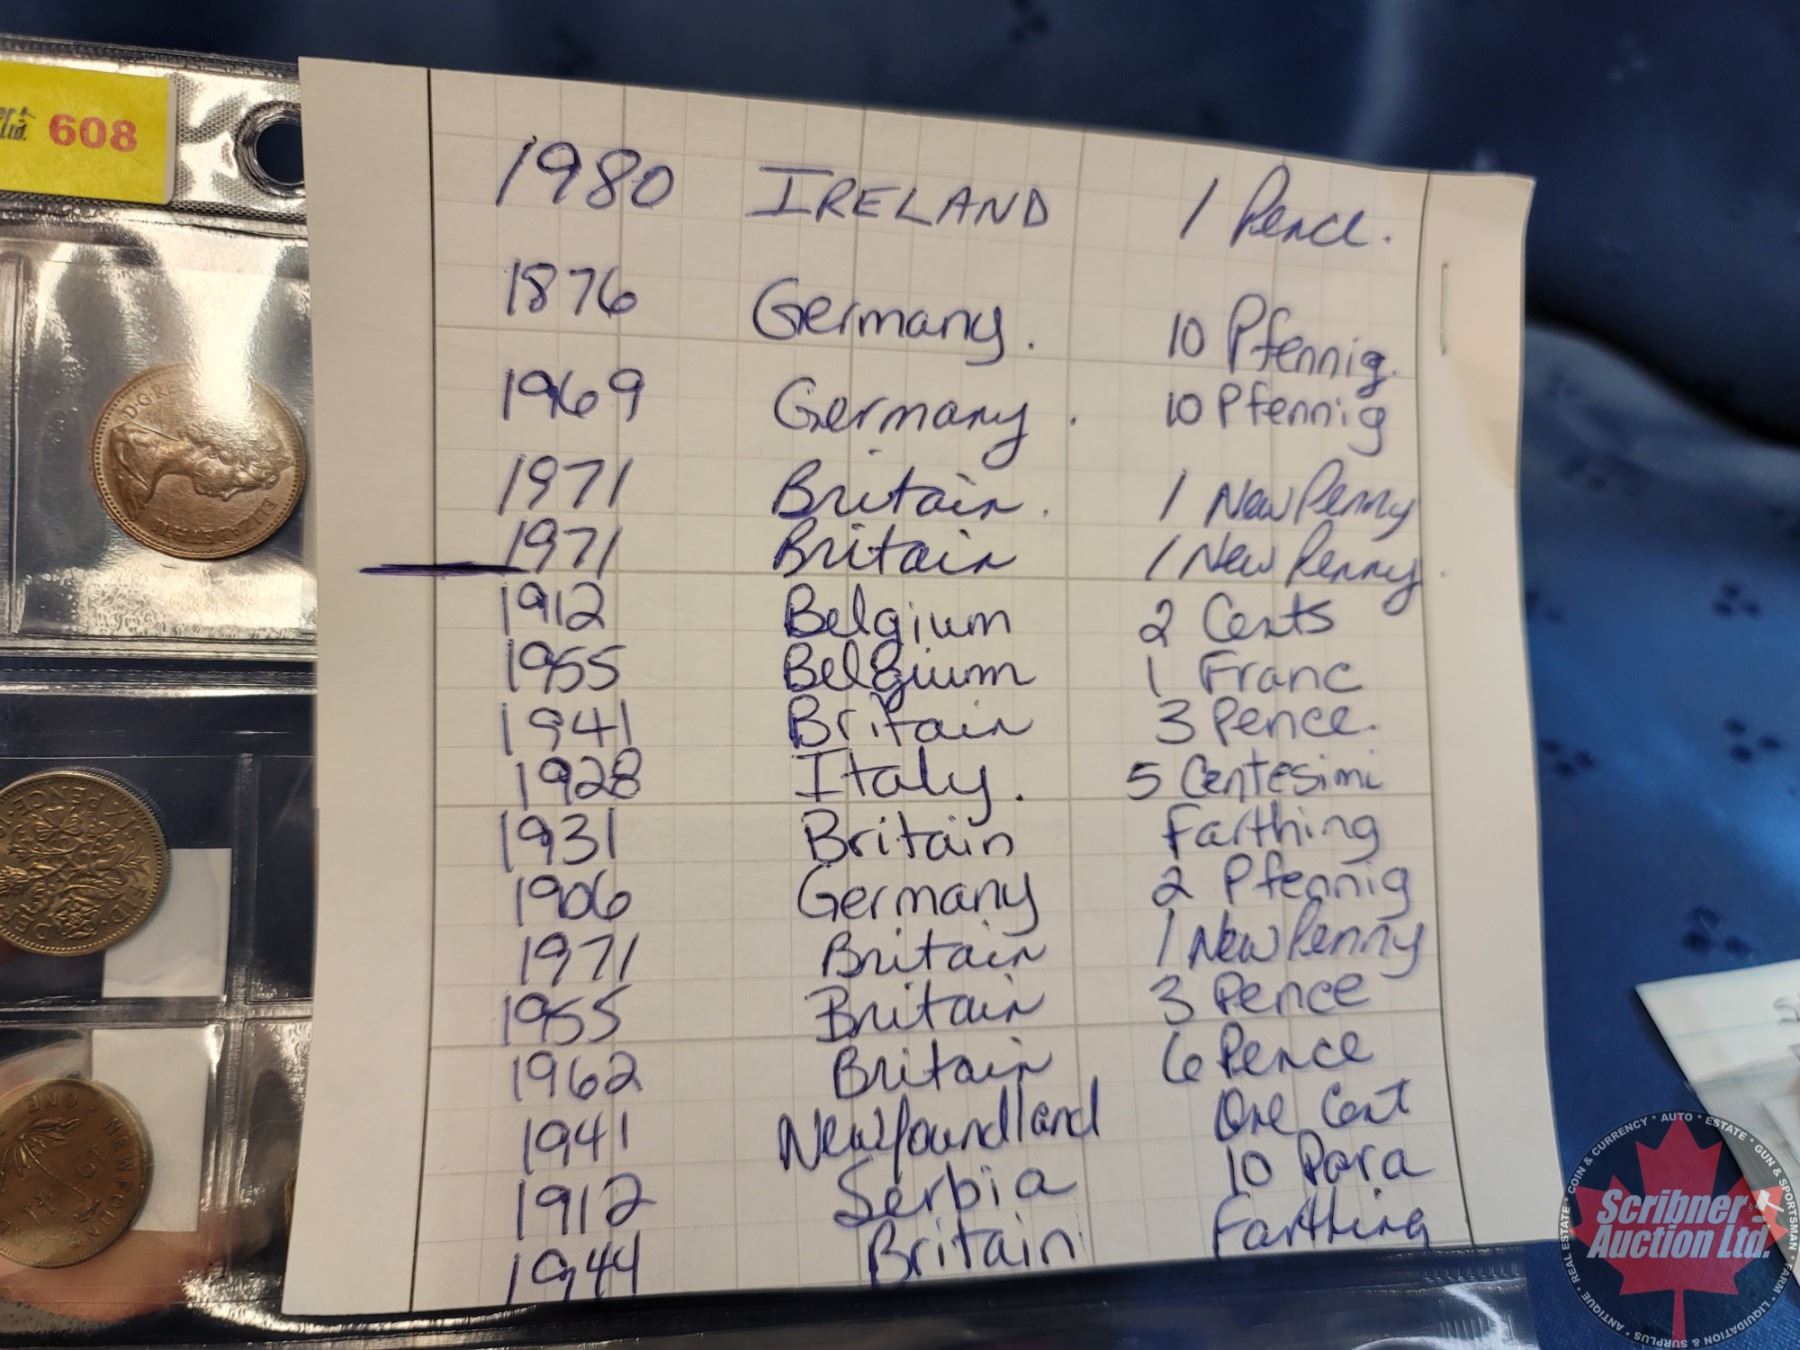 608
1980 IRELAND 1 Pence.
1876 Germany. 10 Pfennig.
1969 Germany. 10 Pfennig
1971 Britain. 1 New Penny
1971 Britain 1 New Penny.
1912 Belgium 2 Cents
1955 Belgium 1 Franc
1941 Britain 3 Pence.
1928 Italy. 5 Centesimi
1931 Britain Farthing
1906 Germany 2 Pfennig
1971 Britain 1 New Penny
1955 Britain 3 Pence
1962 Britain 6 Pence
1941 Newfoundland One Cent
1912 Serbia 10 Para
1944 Britain Farthing
Scribner
Auction Ltd.
REAL ESTATE • COIN & CURRENCY • AUTO • ESTATE • GUN & SPORTSMAN • FARM • LIQUIDATION & SURPLUS • ANTIQUE